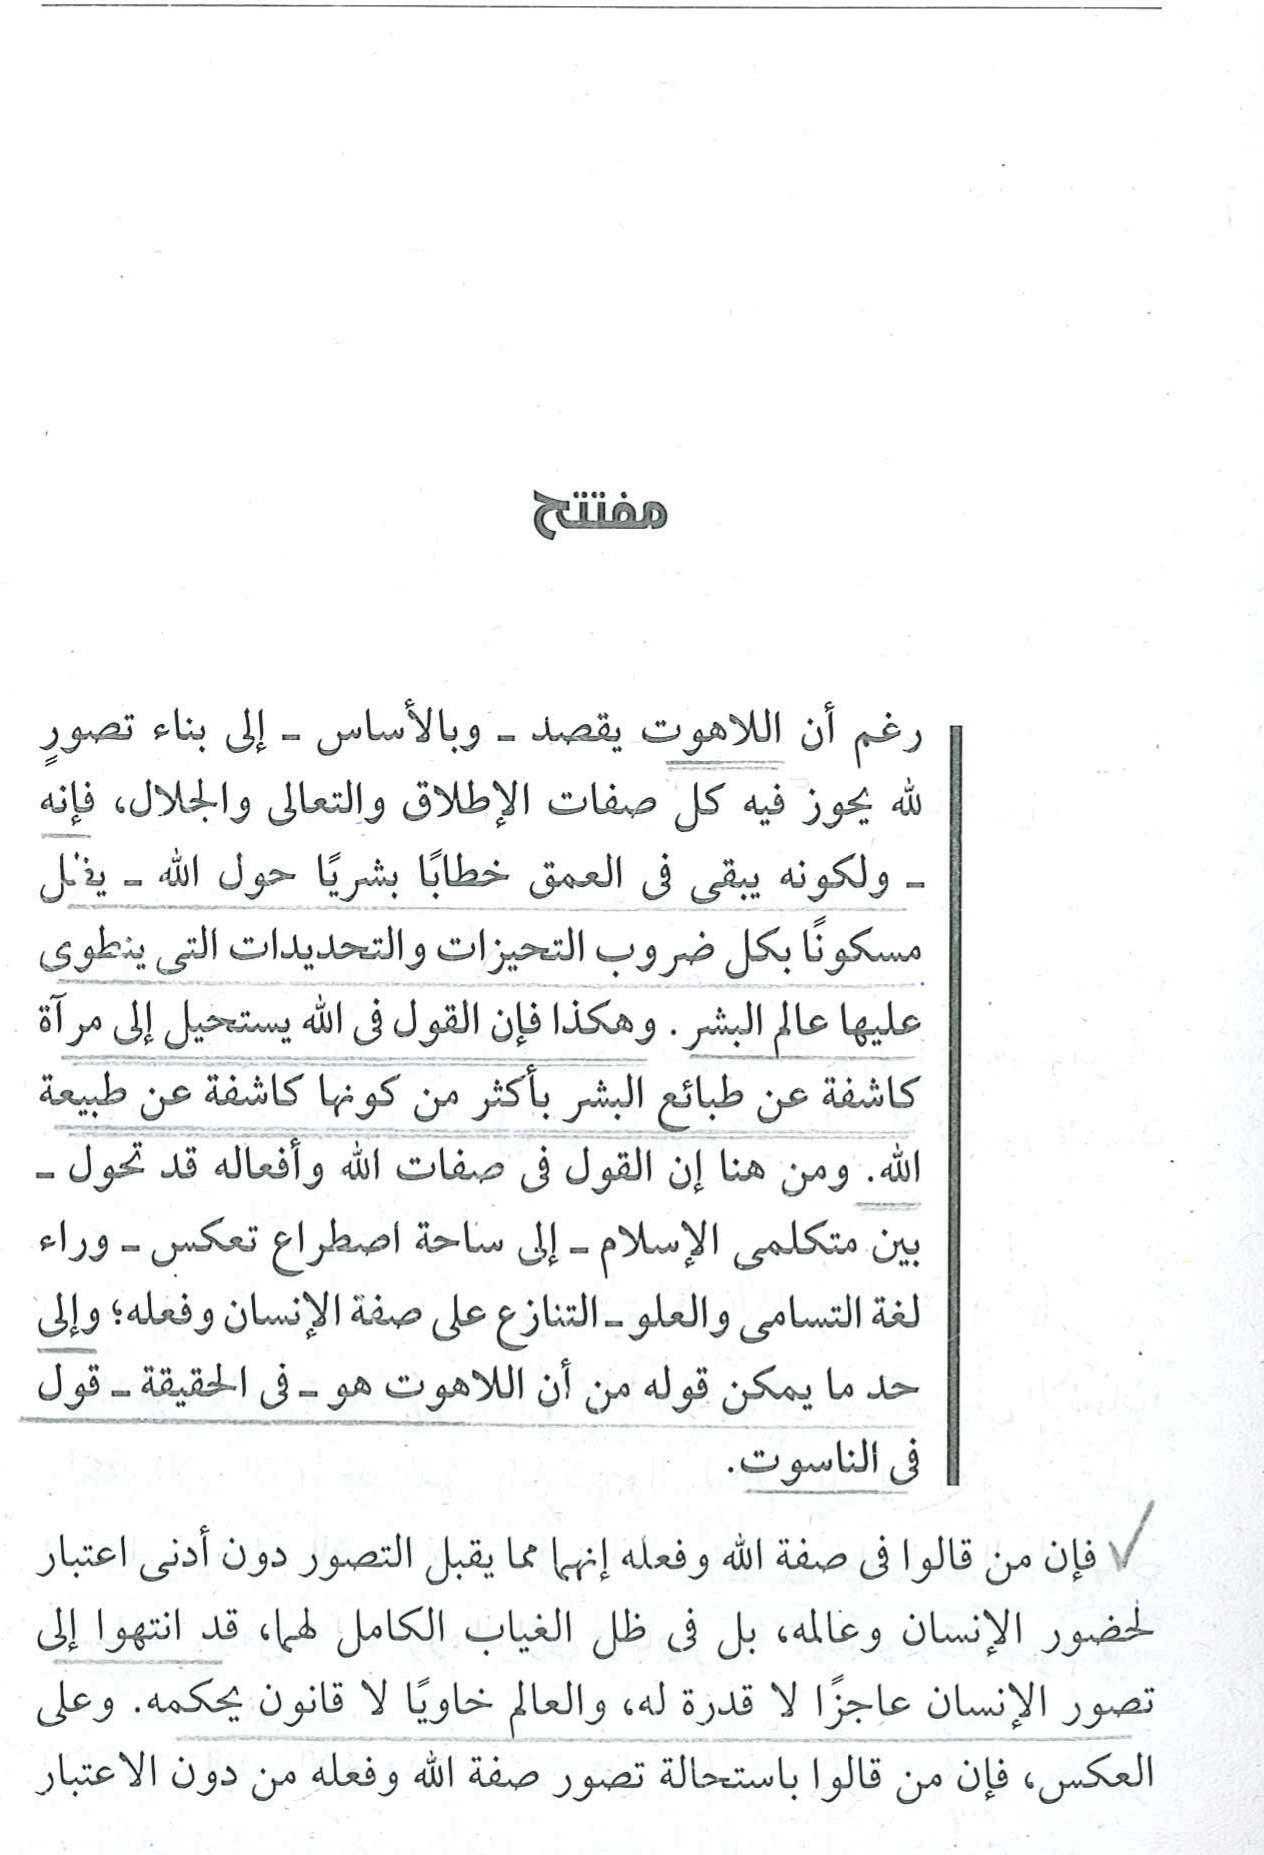 مفتتح
رغم أن اللاهوت يقصد ـ وبالأساس ـ إلى بناء تصورٍ
لله يحوز فيه كل صفات الإطلاق والتعالى والجلال، فإنه
ـ ولكونه يبقى فى العمق خطابًا بشريًا حول الله ـ يظل
مسكونًا بكل ضروب التحيزات والتحديدات التى ينطوى
عليها عالم البشر. وهكذا فإن القول فى الله يستحيل إلى مرآة
كاشفة عن طبائع البشر بأكثر من كونها كاشفة عن طبيعة
الله. ومن هنا إن القول فى صفات الله وأفعاله قد تحول ـ
بين متكلمى الإسلام ـ إلى ساحة اصطراع تعكس ـ وراء
لغة التسامى والعلو ـ التنازع على صفة الإنسان وفعله؛ وإلى
حد ما يمكن قوله من أن اللاهوت هو ـ فى الحقيقة ـ قول
فى الناسوت.
فإن من قالوا فى صفة الله وفعله إنهما مما يقبل التصور دون أدنى اعتبار
لحضور الإنسان وعالمه، بل فى ظل الغياب الكامل لهما، قد انتهوا إلى
تصور الإنسان عاجزًا لا قدرة له، والعالم خاويًا لا قانون يحكمه. وعلى
العكس، فإن من قالوا باستحالة تصور صفة الله وفعله من دون الاعتبار